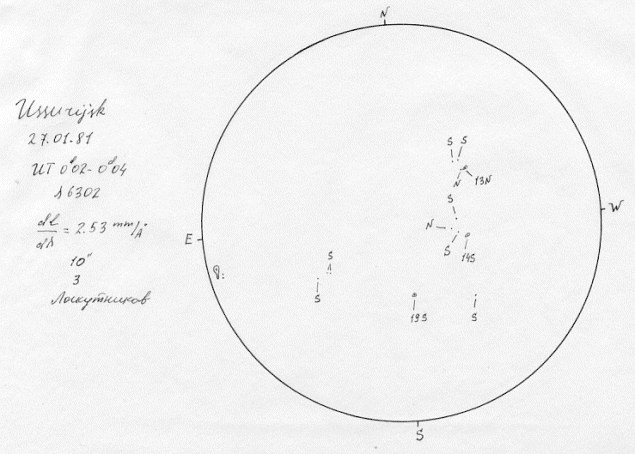 Ussurijsk
27.01.81
UT 0ʰ02-0ʰ04
λ6302
dl/dλ = 2.53 mm/Å
10"
3
Лоскутников
N
S S
N 13N
S
N
S 14S
W
E
S
S
19S
S
S